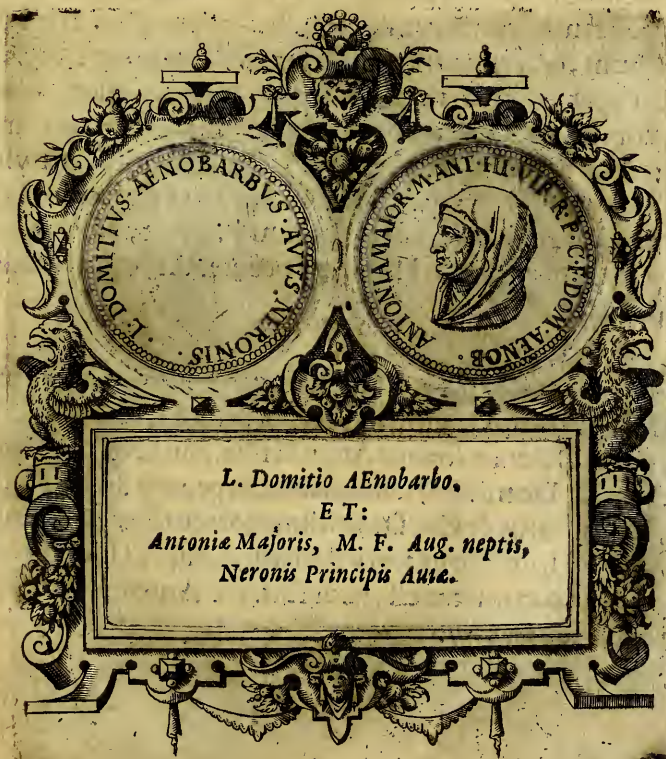 L. DOMITIVS · AENOBARBVS · AVVS · NERONIS ·
ANTONIA MAIOR · M · ANT · III · VIR · R · P · C · F · DOM · AENOB ·
L. Domitio AEnobarbo,
ET:
Antoniæ Majoris, M. F. Aug. neptis,
Neronis Principis Auiæ.